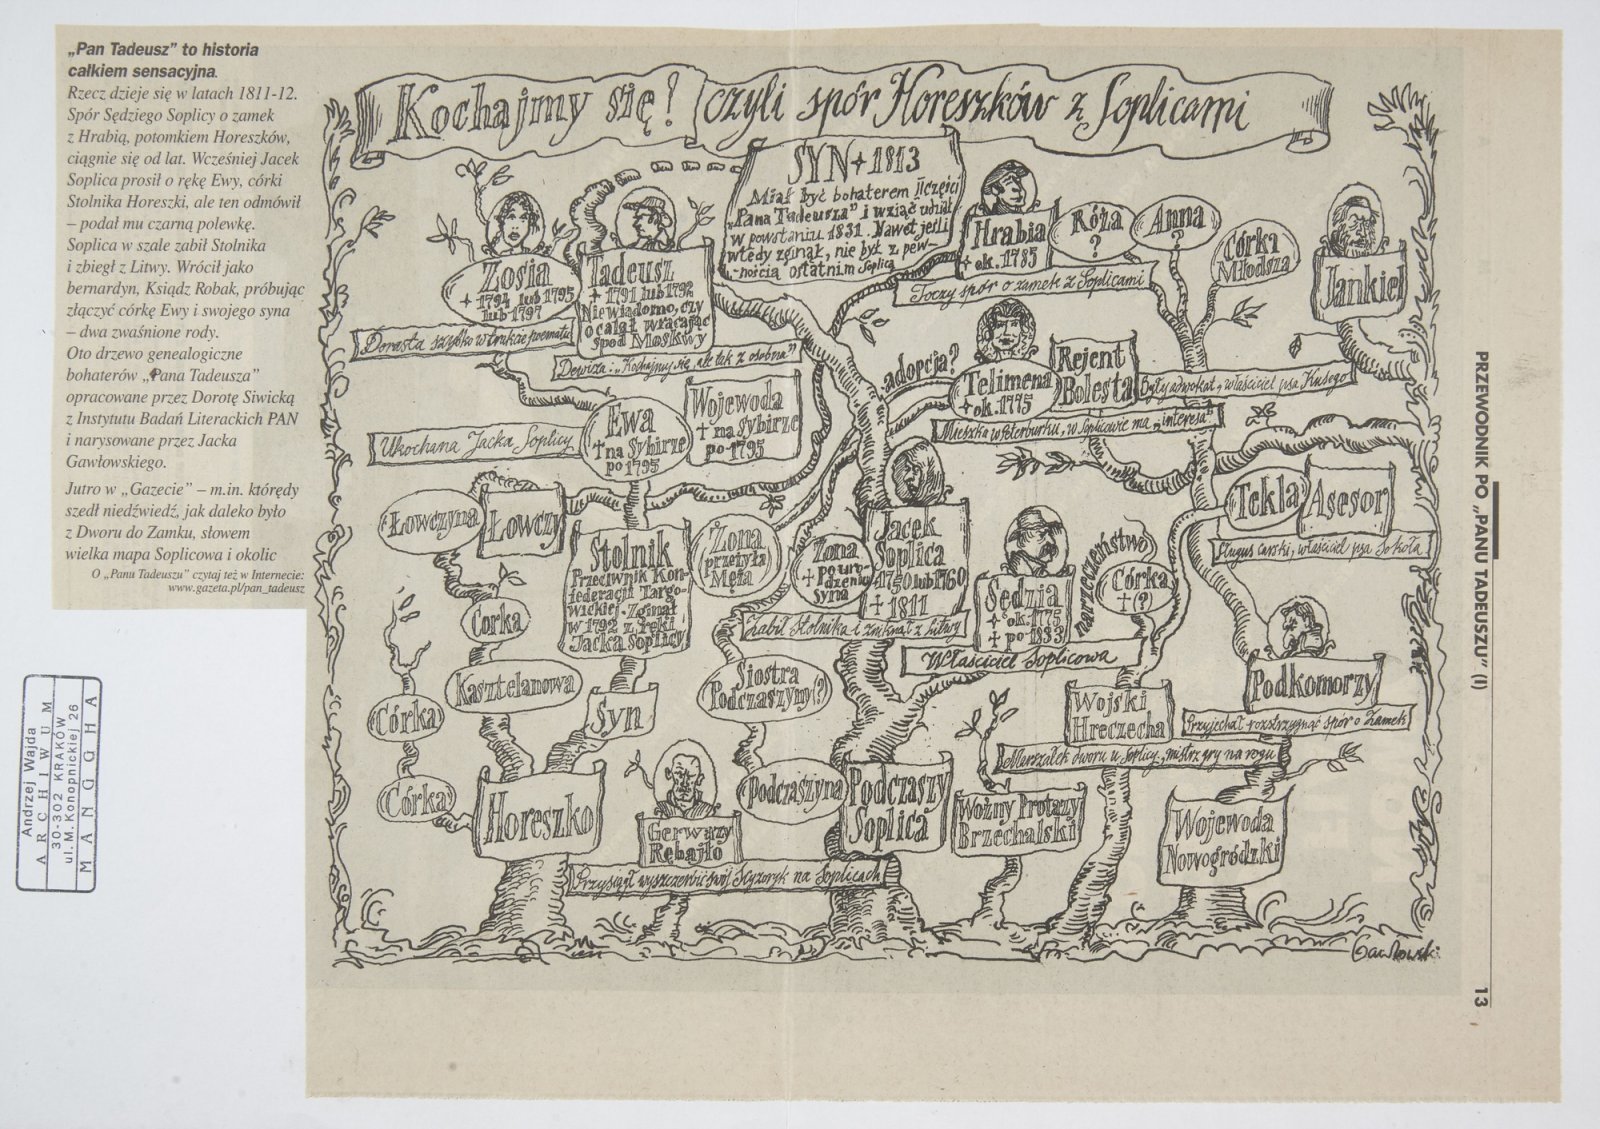 „Pan Tadeusz” to historia
całkiem sensacyjna.
Rzecz dzieje się w latach 1811-12.
Spór Sędziego Soplicy o zamek
z Hrabią, potomkiem Horeszków,
ciągnie się od lat. Wcześniej Jacek
Soplica prosił o rękę Ewy, córki
Stolnika Horeszki, ale ten odmówił
– podał mu czarną polewkę.
Soplica w szale zabił Stolnika
i zbiegł z Litwy. Wrócił jako
bernardyn, Ksiądz Robak, próbując
złączyć córkę Ewy i swojego syna
– dwa zwaśnione rody.
Oto drzewo genealogiczne
bohaterów „Pana Tadeusza”
opracowane przez Dorotę Siwicką
z Instytutu Badań Literackich PAN
i narysowane przez Jacka
Gawłowskiego.
Jutro w „Gazecie” – m.in. którędy
szedł niedźwiedź, jak daleko było
z Dworu do Zamku, słowem
wielka mapa Soplicowa i okolic
O „Panu Tadeuszu” czytaj też w Internecie:
www.gazeta.pl/pan_tadeusz
Kochajmy się! czyli spór Horeszków z Soplicami
SYN + 1813
Miał być bohaterem II części
„Pana Tadeusza” i wziąć udział
w powstaniu 1831. Nawet jeśli
wtedy zginął, nie był z pew-
nością ostatnim Soplicą
Zosia
+ 1794 lub 1795
lub 1797
Dorasta szybko w trakcie poematu
Tadeusz
+ 1791 lub 1792
Nie wiadomo, czy
ocalał wracając
spod Moskwy
Dewiza: „Kochajmy się, ale tak z osobna”
Hrabia
+ ok. 1785
Toczy spór o zamek z Soplicami
Róża
?
Anna
?
Córka
Młodsza
Jankiel
adopcja?
Telimena
+ ok. 1775
Mieszka w Peterburku, w Soplicowie ma „interesa”
Rejent
Bolesta
Były adwokat, właściciel psa Kusego
Ewa
† na Sybirze
po 1795
Ukochana Jacka Soplicy
Wojewoda
† na Sybirze
po 1795
Łowczyna
Łowczy
Stolnik
Przeciwnik Kon-
federacji Targo-
wickiej. Zginął
w 1792 z ręki
Jacka Soplicy
Żona
przeżyła
Męża
Żona
† po uro-
dzeniu
syna
Jacek
Soplica
+ 1750 lub 1760
† 1811
Zabił Stolnika i zniknął z Litwy
Sędzia
+ ok. 1775
† po 1833
Właściciel Soplicowa
narzeczeństwo
Córka
† (?)
Tekla
Asesor
Sługus carski, właściciel psa Sokoła
Podkomorzy
Przyjechał rozstrzygnąć spór o Zamek
Córka
Kasztelanowa
Córka
Syn
Siostra
Podczaszyny(?)
Wojski
Hreczecha
Marszałek dworu u Soplicy, mistrz gry na rogu
Córka
Horeszko
Gerwazy
Rębajło
Przysiągł wyszczerbić swój Scyzoryk na Soplicach
Podczaszyna
Podczaszy
Soplica
Woźny Protazy
Brzechalski
Wojewoda
Nowogródzki
Gawłowski
PRZEWODNIK PO „PANU TADEUSZU” (I)
13
Andrzej Wajda
ARCHIWUM
30-302 KRAKÓW
ul. M. Konopnickiej 26
MANGGHA